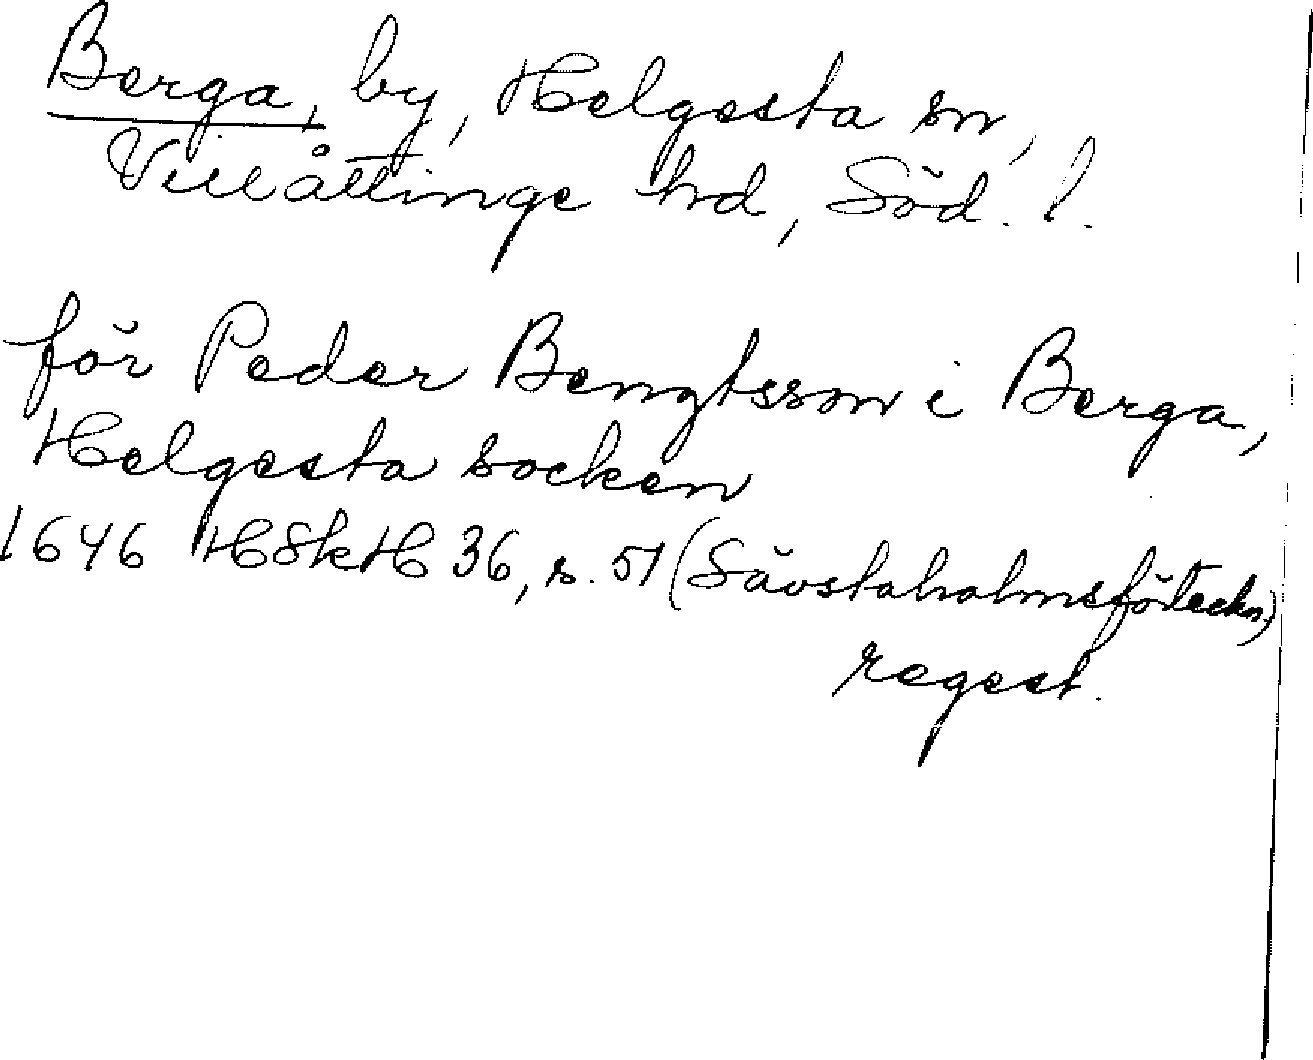 Berga, by, Helgesta sn,
Villåttinge hd, Söd. l.
för Peder Bengtsson i Berga,
Helgesta socken
1646 HSkH 36, s. 51 (Sävstaholmsförteckn)
regest.